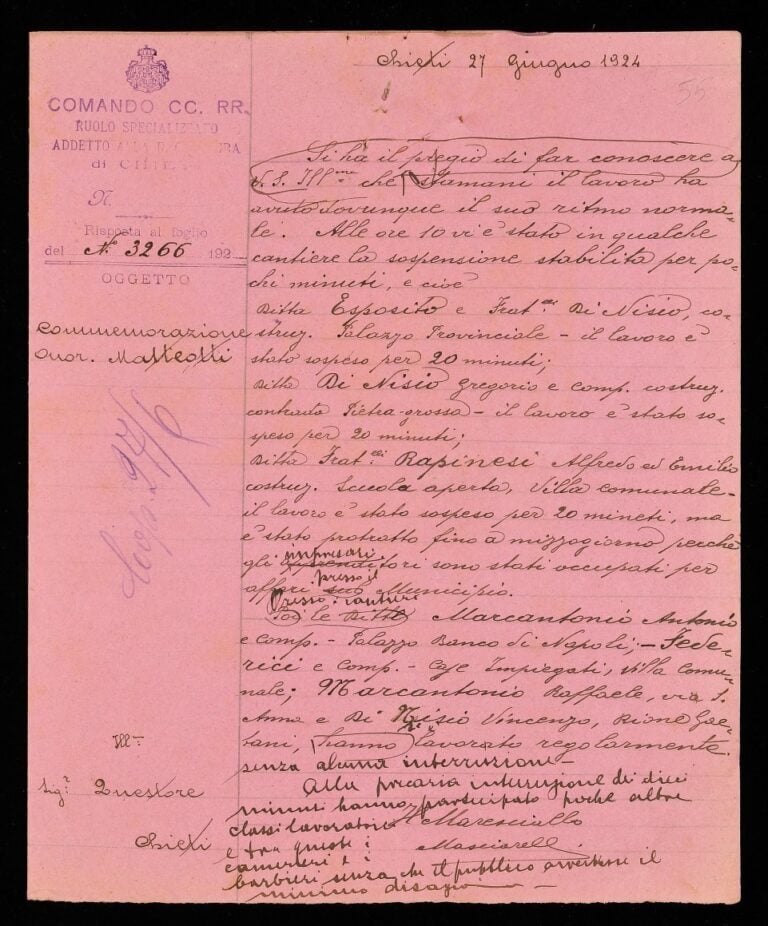 Chieti 27 Giugno 1924
55
COMANDO CC. RR.
RUOLO SPECIALIZZATO
ADDETTO ALLA
di CHIETI
N.
Risposta al foglio
del N. 3266 192
OGGETTO
Commemorazione
Onor. Matteotti
Si ha il pregio di far conoscere a
V. S. Ill.ma che stamani il lavoro ha
avuto dovunque il suo ritmo norma-
le. Alle ore 10 vi è stato in qualche
cantiere la sospensione stabilita per po-
chi minuti, e cioè
Ditta Esposito e Frat.lli Di Nisio, co-
struz. Palazzo Provinciale - il lavoro è
stato sospeso per 20 minuti;
Ditta Di Nisio Gregorio e comp. costruz.
contrada Pietra-grossa - il lavoro è stato so-
speso per 20 minuti;
Ditta Frat.lli Rapinesi Alfredo ed Emilio
costruz. Scuola aperta, Villa comunale -
il lavoro è stato sospeso per 20 mineti, ma
è stato protratto fino a mezzogiorno perchè
impresari
gli imprenditori sono stati occupati per
presso il
affari sul Municipio.
Presso i cantieri
le Ditte Marcantonio Antonio
e comp. - Palazzo Banco di Napoli; - Fede-
rici e comp. - Case Impiegati, Villa Comu-
nale; Marcantonio Raffaele, via S.
Anna e Di Nisio Vincenzo, Rione Gae-
tani, hanno lavorato regolarmente.
senza alcuna interruzione -
Alla precaria interruzione di dieci
minuti hanno participato poche altre
classi lavoratrici
e tra queste i
camerieri e i
barbieri senza che il pubblico avvertisse il
minimo disagio -
Il Maresciallo
Masciarelli
Ill.mo
Sig.r Questore
Chieti